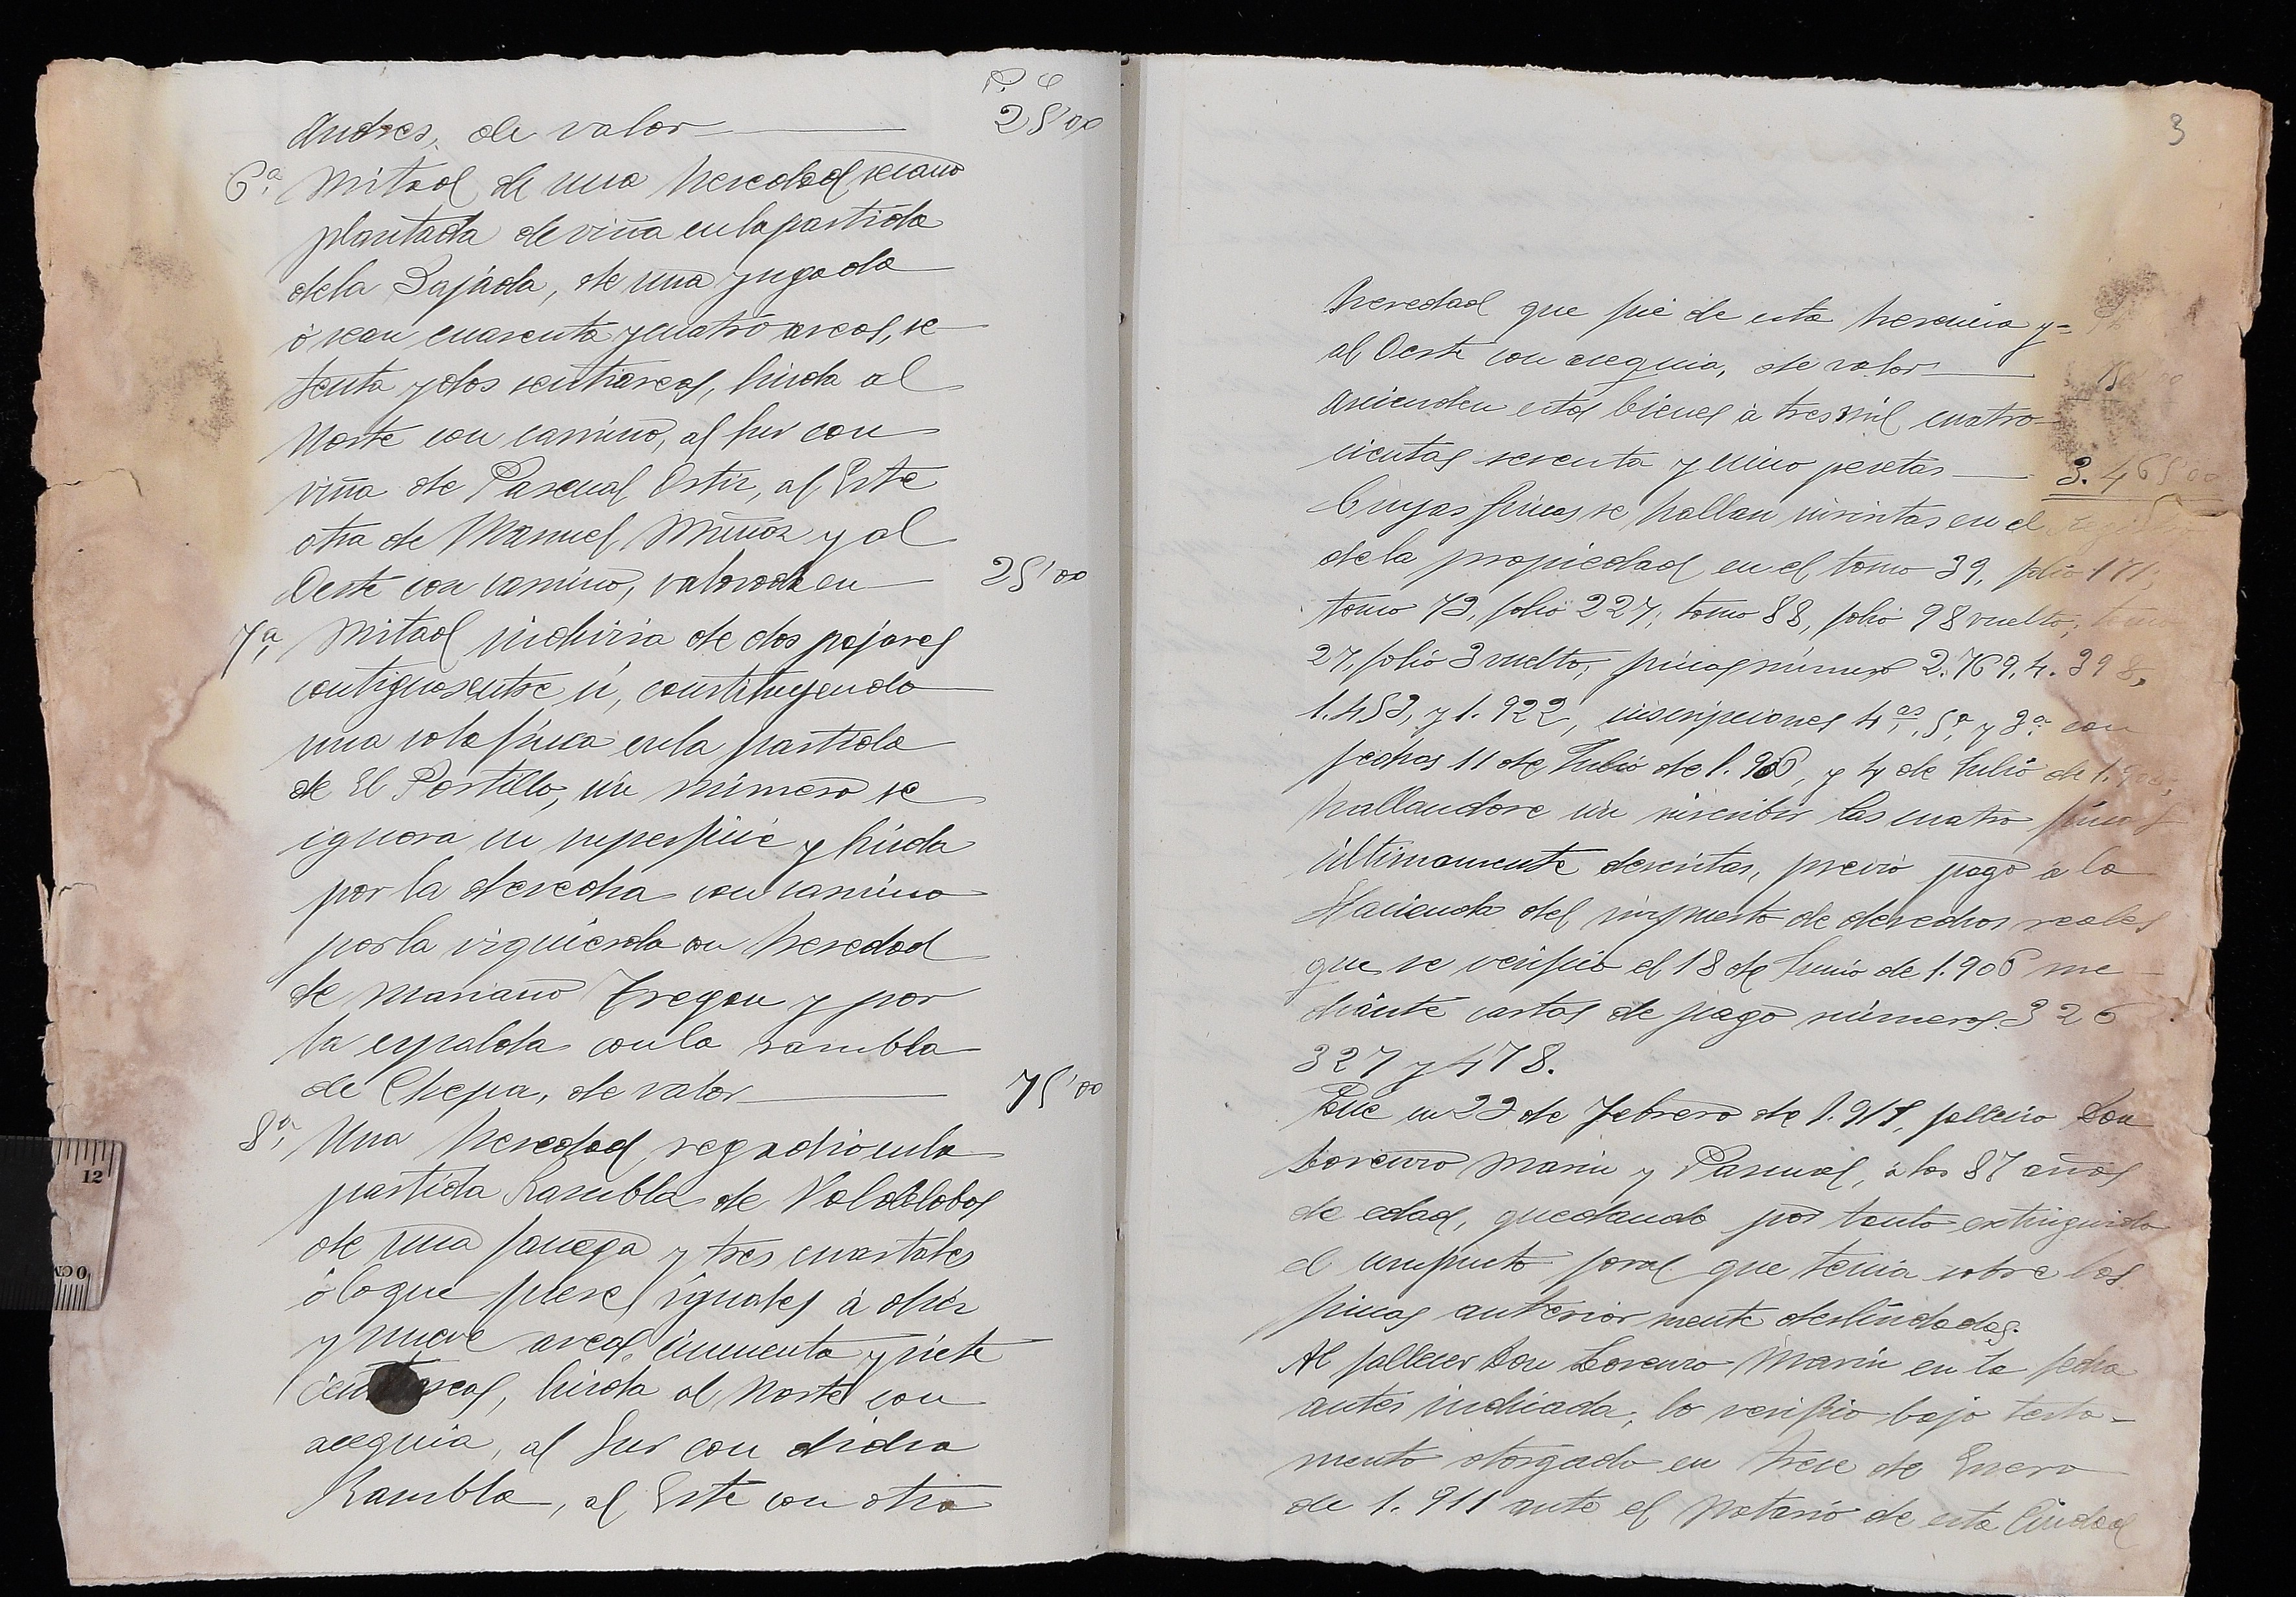 P. C
Andres, de valor 25'00
6ª, Mitad de una heredad, secano
plantada de viña en la partida
de la Sajada, de una yugada
ó sean cuarenta y cuatro areas, se-
tenta y dos centiareas, linda al
Norte con camino, al Sur con
viña de Pascual Ostiz, al Este
otra de Manuel Muñoz y al
Oeste con camino, valorada en 25'00
7ª, Mitad indivisa de dos pajares
contiguos entre si, constituyendo
una sola finca en la partida
de El Portillo, sin número se
ignora su superficie y linda
por la derecha con camino
por la izquierda con heredad
de Mariano Tregon y por
la espalda con la rambla
de Chepa, de valor 75'00
8ª, Una heredad, regadio en la
partida Rambla de Valdelobos
de una fanega y tres cuartales
ó lo que fuese, iguales á diez
y nueve areas, cincuenta y siete
linda al Norte con
acequia, al Sur con dicha
Rambla, al Este con otra
3
heredad que fué de esta herencia y
al Oeste con acequia, de valor
Ascienden estos bienes à tres mil cuatro-
cientas sesenta y cinco pesetas 3.465'00
Cuyas fincas se hallan inscritas en el
de la propiedad en el tomo 39, folio 181,
tomo 73, folio 227; tomo 88, folio 98 vuelto; tomo
27, folio 3 vuelto; fincas número 2.769, 4.398,
1.453, y 1.922, inscripciones 4ªs, 5ª, y 3ª con
fechas 11 de Julio de 1.906, y 4 de Julio de
hallandose sin inscribir las cuatro fincas
últimamente descritas, previo pago á la
Hacienda del impuesto de derechos reales
que se verificó el 18 de Junio de 1.906 me-
diante cartas de pago números 326
327 y 478.
Que en 23 de Febrero de 1.918, falleció Don
Lorenzo Marin y Pascual, á los 87 años
de edad, quedando por tanto extinguido
el usufructo foral que tenia sobre las
fincas anteriormente deslindadas.
Al fallecer Don Lorenzo Marin en la fecha
antes indicada, lo verificó bajo testa-
mento otorgado en trece de Enero
de 1.911 ante el Notario de esta Ciudad